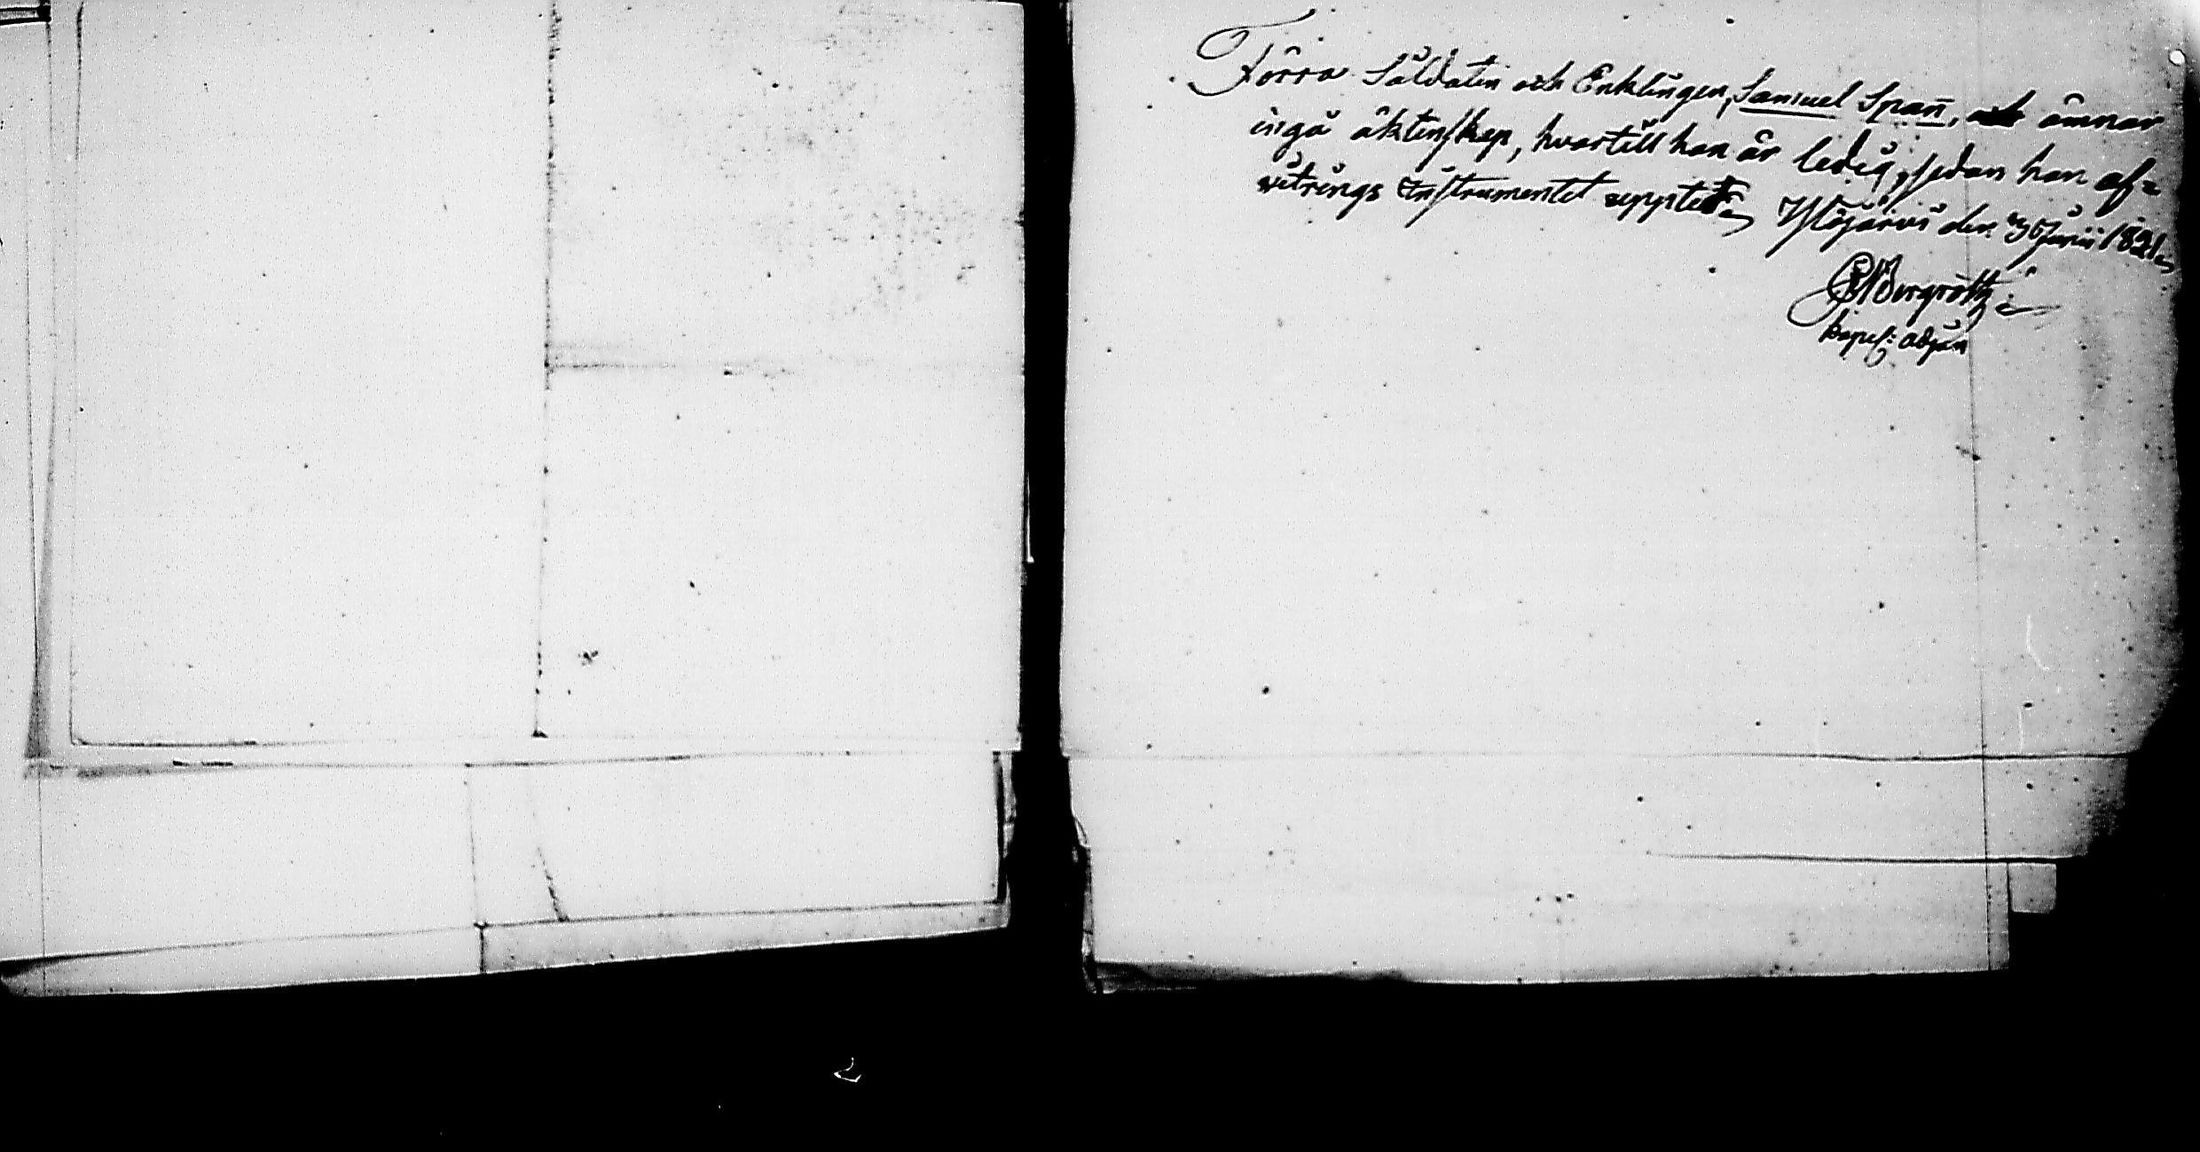 Förra Soldaten och Enklingen, Samuel Spañ, ämnar
ingå äktenskap, hvartill han är ledig, sedan han af=
witrings Instrumentet uppte. Ylöjärvi den Junii 1821.
Bergroth
kapel: adjun